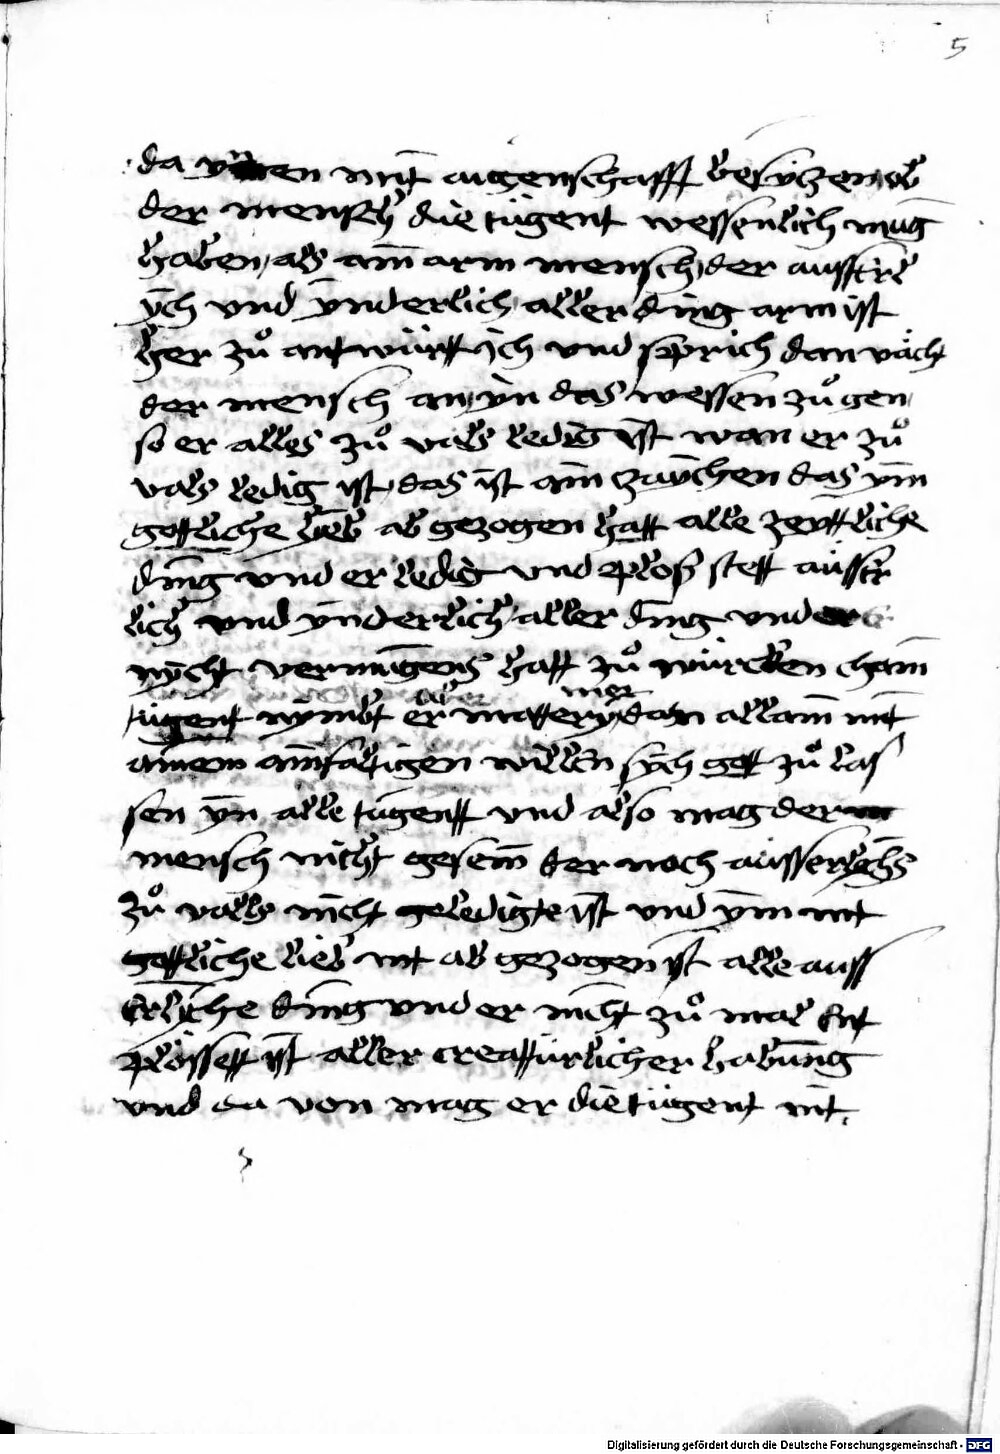 5
da mit aigenschafft besytzen ob
der mensch die tugent wessenlich mug
haben, als ain arm mensch, der ausserl
ych vnd ynderlich aller ding arm ist
her zů antwürtt ich vnd sprich dan vächt
der mensch an yn das wessen zů gen
so er alles zů vals ledig ist wan er zů
vals ledig ist, das ist ain zaychen das ym
gottliche lieb ab gezogen hatt alle zeyttliche
ding vnd er ledig vnd plos stett ausser
lich vnd ynderlich aller ding vnd er
nycht vermugens hatt zů würcken chain
tugent nymbt er aber mattery mer dan allain mit
ainem ainfaltigen willen sych gott zů las
sen yn alle tugentt vnd also mag der
mensch nicht gesein der noch ausserlichs
zů valls nicht geledigte ist vnd ym nit
gottliche lieb nit ab gezogen ist alle auss
erlyche ding vnd er nicht zů mal ent
plössett ist aller creattürlicher habung
vnd da von mag er die tugent nit.
Digitalisierung gefördert durch die Deutsche Forschungsgemeinschaft - DFG